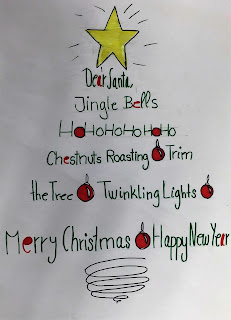 Dear Santa,
Jingle Bells
HoHoHoHoHoHo
Chestnuts Roasting Trim
the Tree Twinkling Lights
Merry Christmas Happy New Year